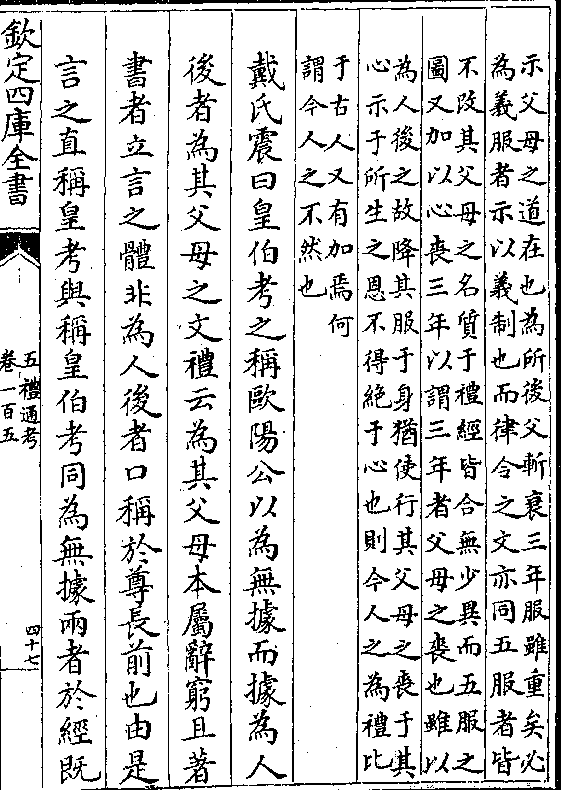 示父母之道在也為所後父斬衰三年服雖重矣必
為義服者示以義制也而律令之文亦同五服者皆
不改其父母之名質于禮經皆合無少異而五服之
圖又加以心喪三年以謂三年者父母之喪也雖以
為人後之故降其服于身猶使行其父母之喪于其
心示于所生之恩不得絶于心也則今人之為禮比
于古人又有加焉何
謂今人之不然也
戴氏震曰皇伯考之稱歐陽公以為無據而據為人
後者為其父母之文禮云為其父母本屬辭窮且著
書者立言之體非為人後者口稱於尊長前也由是
言之直稱皇考與稱皇伯考同為無據兩者於經既
欽定四庫全書
五禮通考
卷一百五
四十七